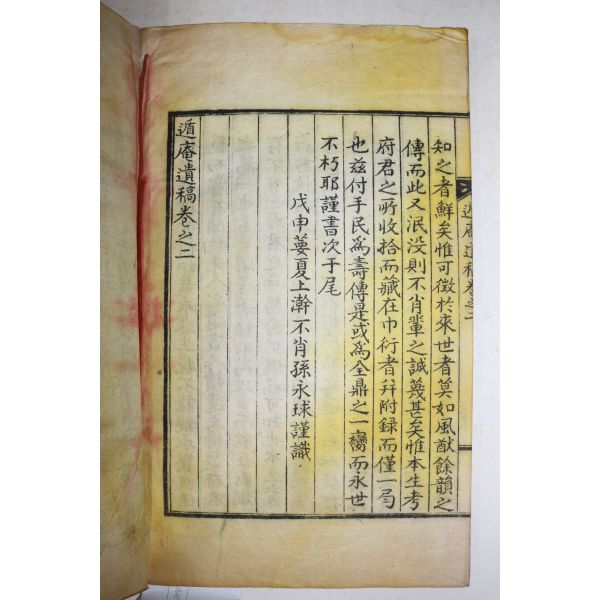 遁庵遺稿卷之二
知之者鮮矣惟可徵於來世者莫如風猷餘韻之
傳而此又泯没則不肖輩之誠蔑甚矣惟本生考
府君之所收拾而藏在巾衍者幷附録而僅一局
也玆付手民爲壽傳是或爲全鼎之一臠而永世
不朽耶謹書次于尾
戊申蓂夏上澣不肖孫永球謹識
遁庵遺稿卷之二